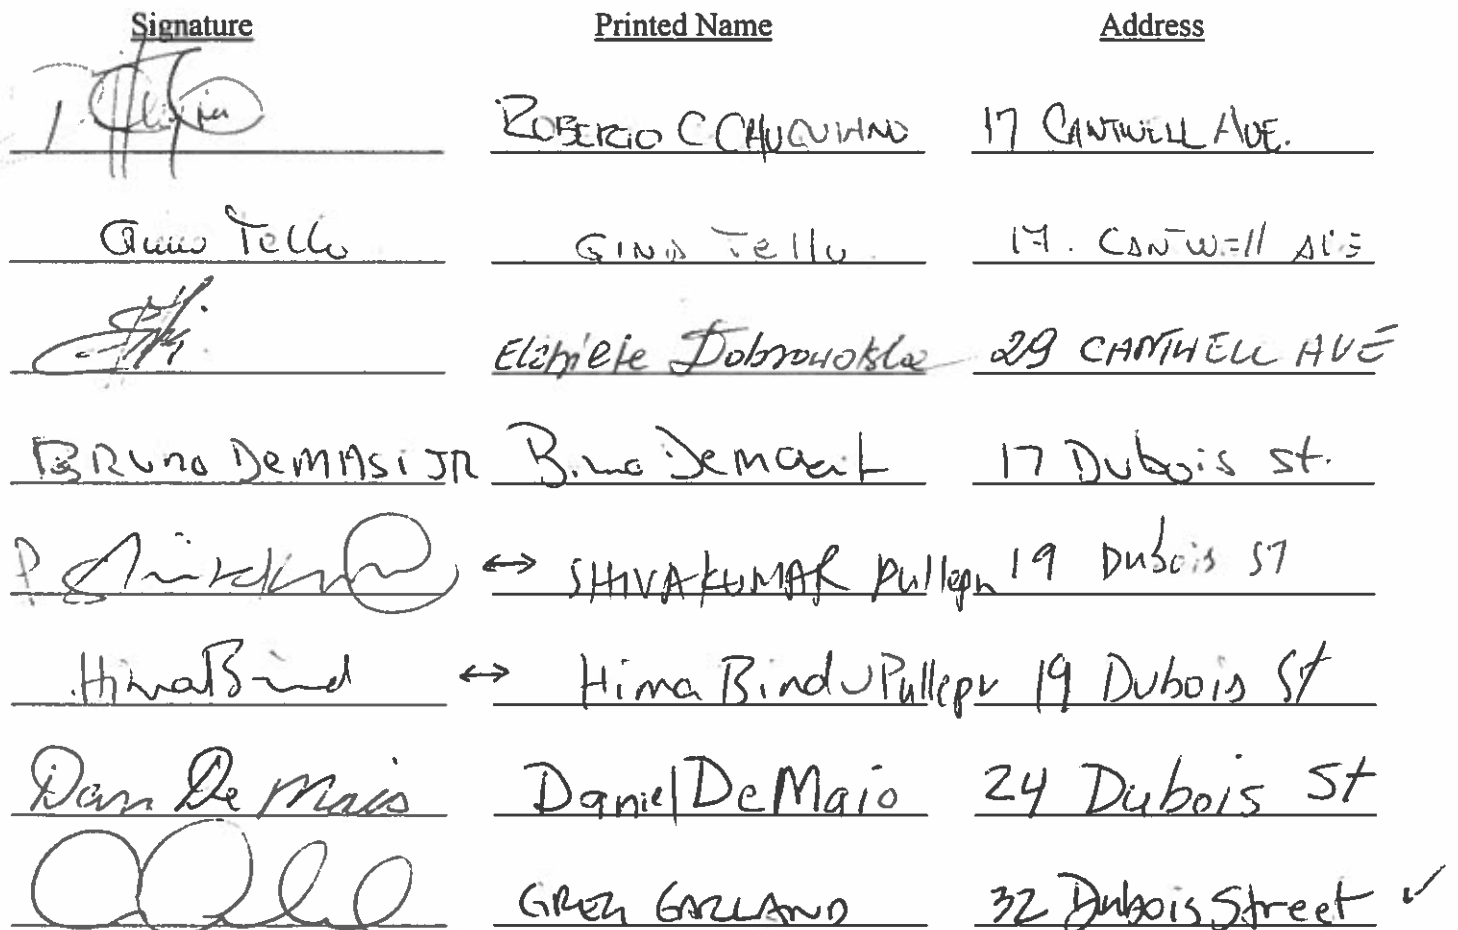 Signature Printed Name Address
ROBERTO C CHUQUIHNO 17 CANTWELL AVE.
Gino Tello GINA Tello 17. CANTWEll AVE
Dobrowolska 29 CANTWELL AVE
BRUNO DEMASI JR 17 Dubois st.
P ↔ SHIVAKUMAR Pullepu 19 Dubois ST
Hima Bind ↔ Hima Bindu Pullepu 19 Dubois St
Dan De Maio Daniel DeMaio 24 Dubois St
GREG GARLAND 32 Dubois Street ✓